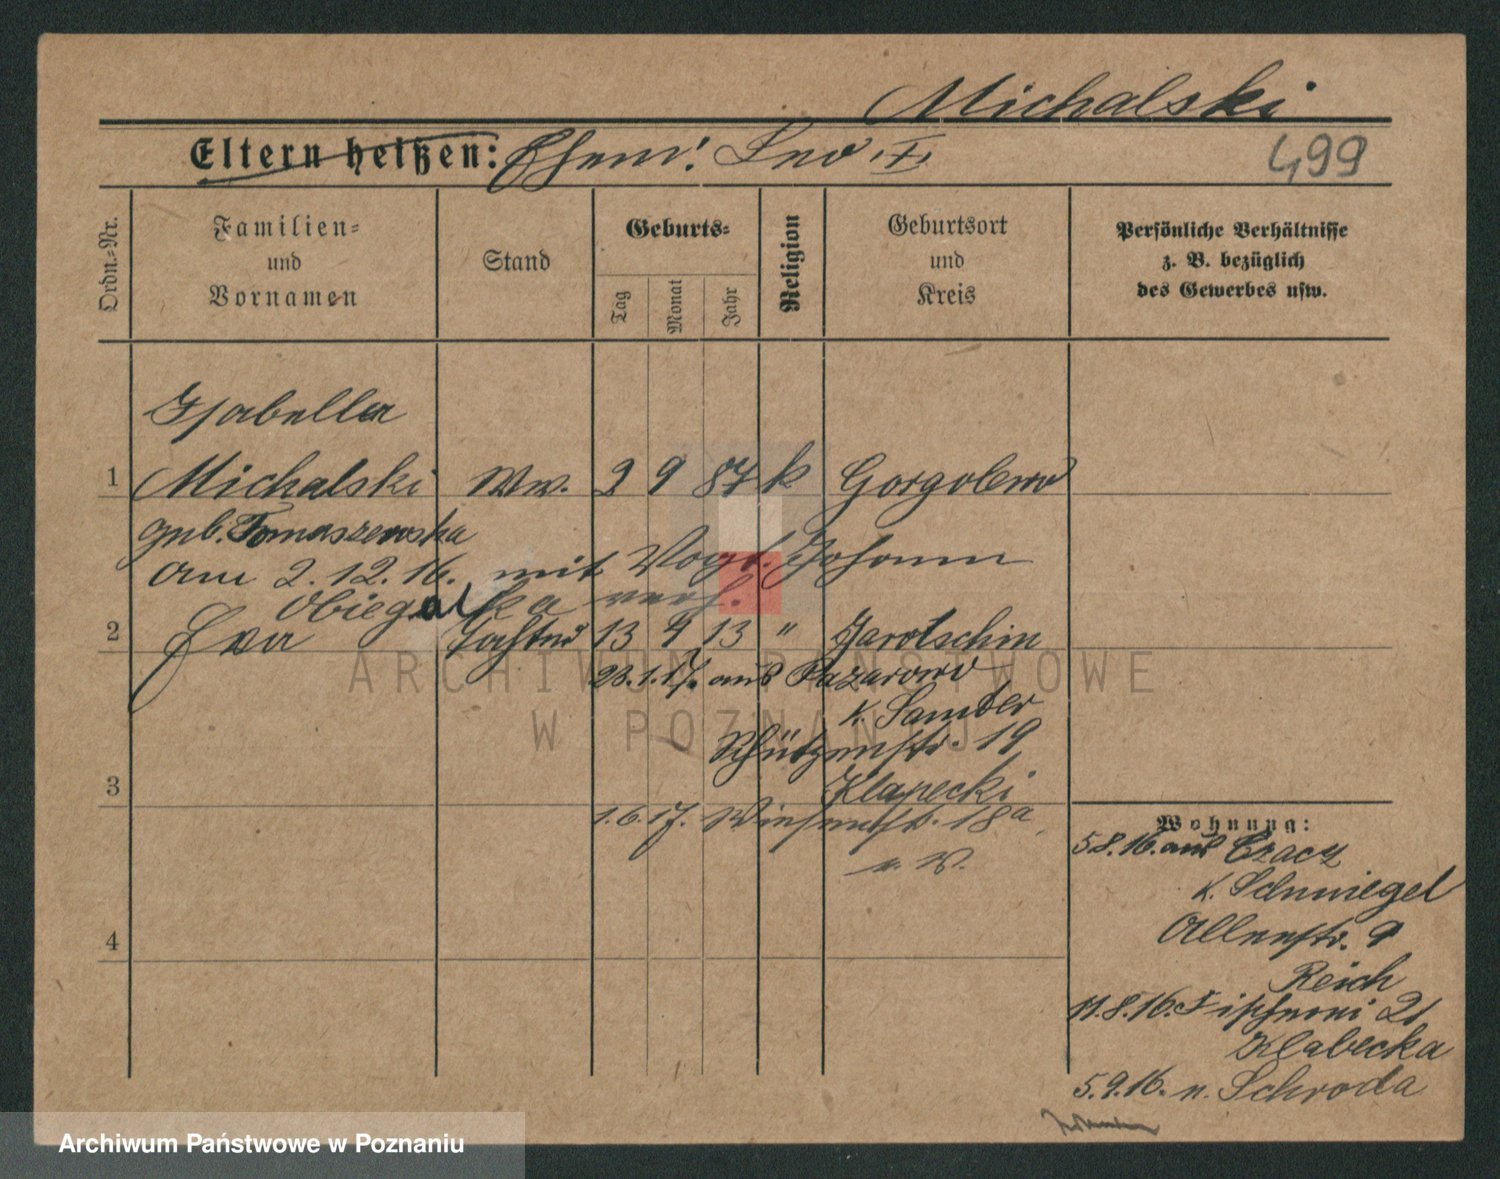 Michalski
Eltern heißen: Ehem: Leo †
499
Ordn.-Nr.
Familien-
und
Vornamen
Stand
Geburts-
Tag
Monat
Jahr
Religion
Geburtsort
und
Kreis
Persönliche Verhältnisse
z. B. bezüglich
des Gewerbes usw.
Isabella
1 Michalski Ww. 2 9 87 k Gorgolewo
geb. Tomaszewska
am 2.12.16. mit Vogt Johann
Obiegalka verh.
2 Eva Tochter 13 4 13 " Jarotschin
23.1.17. aus Pazarowo
K. Samter
Schützenstr. 19
3 Klapecki
1.6.17. Wiesenstr. 18a
n. W.
4
Wohnung:
5.8.16. aus Czacz
K. Schmiegel
Allenstr. 9
Reich
11.8.16. Fischerei 21
Klabecka
5.9.16. n. Schroda
ARCHIWUM PAŃSTWOWE
W POZNANIU
Archiwum Państwowe w Poznaniu